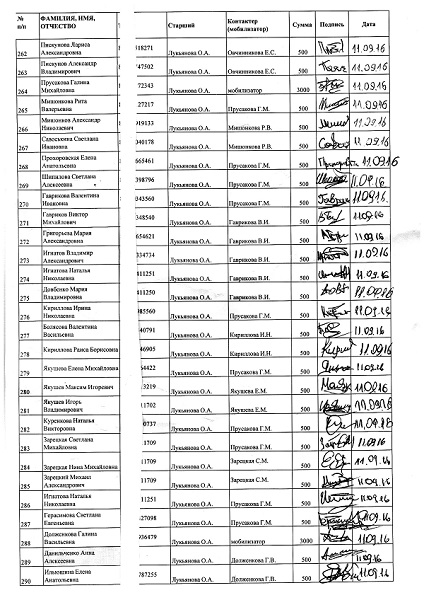 № п/п ФАМИЛИЯ, ИМЯ, ОТЧЕСТВО Старший Контактер (мобилизатор) Сумма Подпись Дата
262 Пискунова Лариса Александровна 318271 Лукьянова О.А. Овчинникова Е.С. 500 11.09.16
263 Пискунов Александр Владимирович 347502 Лукьянова О.А. Овчинникова Е.С. 500 11.09.16
264 Прусакова Галина Михайловна 172343 Лукьянова О.А. мобилизатор 3000 11.09.16
265 Мишонкова Рита Валерьевна 127217 Лукьянова О.А. Прусакова Г.М. 500 11.09.16
266 Мишонков Александр Николаевич 919133 Лукьянова О.А. Мишонкова Р.В. 500 11.09.16
267 Савоськина Светлана Ивановна 040178 Лукьянова О.А. Мишонкова Р.В. 500 11.09.16
268 Прохоровская Елена Анатольевна 665461 Лукьянова О.А. Прусакова Г.М. 500 11.09.16
269 Шаталова Светлана Алексеевна 398796 Лукьянова О.А. Прусакова Г.М. 500 11.09.16
270 Гаврикова Валентина Ивановна 043560 Лукьянова О.А. Прусакова Г.М. 500 11.09.16
271 Гавриков Виктор Михайлович 348540 Лукьянова О.А. Гаврикова В.И. 500 11.09.16
272 Григорьева Мария Александровна 654621 Лукьянова О.А. Гаврикова В.И. 500 11.09.16
273 Игнатов Владимир Александрович 334734 Лукьянова О.А. Гаврикова В.И. 500 11.09.16
274 Игнатова Наталья Николаевна 811251 Лукьянова О.А. Гаврикова В.И. 500 11.09.16
275 Довбенко Мария Владимировна 811250 Лукьянова О.А. Гаврикова В.И. 500 11.09.16
276 Кириллова Ирина Николаевна 085560 Лукьянова О.А. Прусакова Г.М. 500 11.09.16
277 Васильевна 40791 Лукьянова О.А. Кириллова И.Н. 500 11.09.16
278 Кириллова Раиса Борисовна 46905 Лукьянова О.А. Кириллова И.Н. 500 11.09.16
279 Якушева Елена Михайловна 64422 Лукьянова О.А. Прусакова Г.М. 500 11.09.16
280 Якушев Максим Игоревич 13219 Лукьянова О.А. Якушева Е.М. 500 11.09.16
281 Якушев Игорь Владимирович 11702 Лукьянова О.А. Якушева Е.М. 500 11.09.16
282 Куренкова Наталья Викторовна 0737 Лукьянова О.А. Прусакова Г.М. 500 11.09.16
283 Зарецкая Светлана Михайловна 1709 Лукьянова О.А. Прусакова Г.М. 500 11.09.16
284 Зарецкая Нина Михайловна 11709 Лукьянова О.А. Зарецкая С.М. 500 11.09.16
285 Зарецкий Михаил Александрович 11709 Лукьянова О.А. Зарецкая С.М. 500 11.09.16
286 Игнатова Наталья Николаевна 11251 Лукьянова О.А. Прусакова Г.М. 500 11.09.16
287 Герасимова Светлана Евгеньевна 27098 Лукьянова О.А. Прусакова Г.М. 500 11.09.16
288 Долженкова Галина Васильевна 936479 Лукьянова О.А. мобилизатор 3000 11.09.16
289 Данильченко Анна Алексеевна Лукьянова О.А. Долженкова Г.В. 500 11.09.16
290 Елена Анатольевна 787255 Лукьянова О.А. Долженкова Г.В. 500 11.09.16